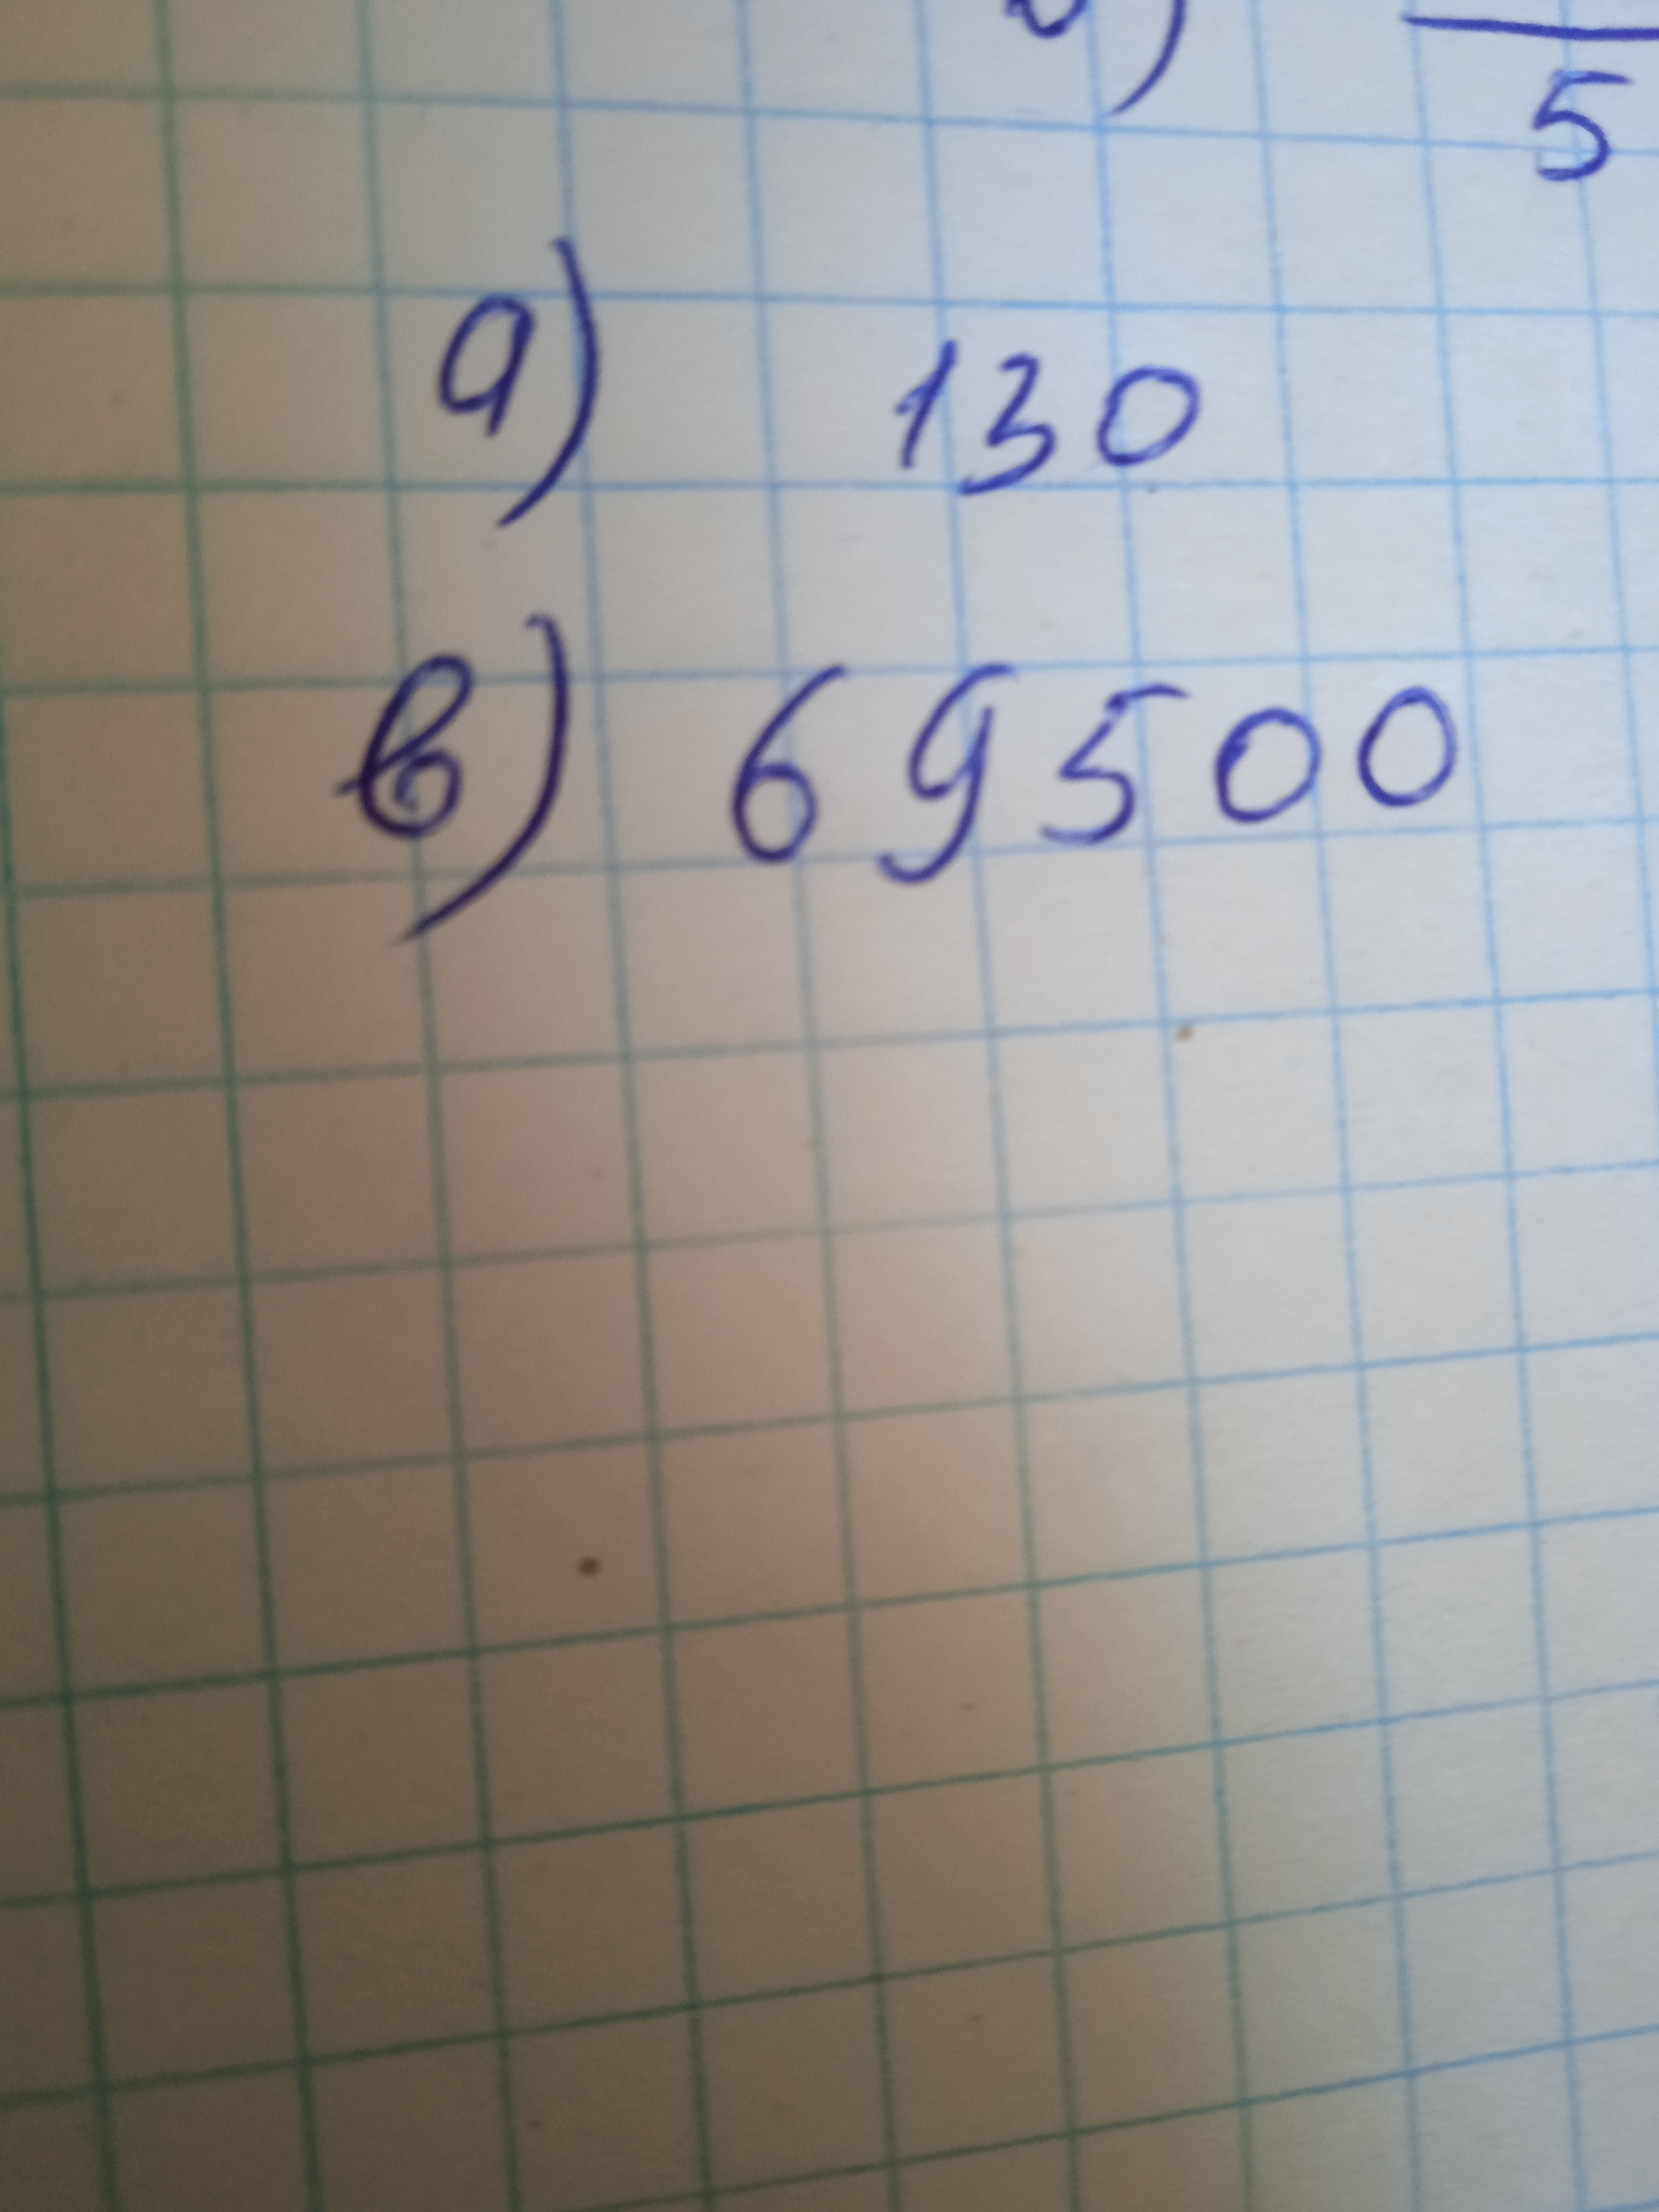 5
а) 130
в) 69500